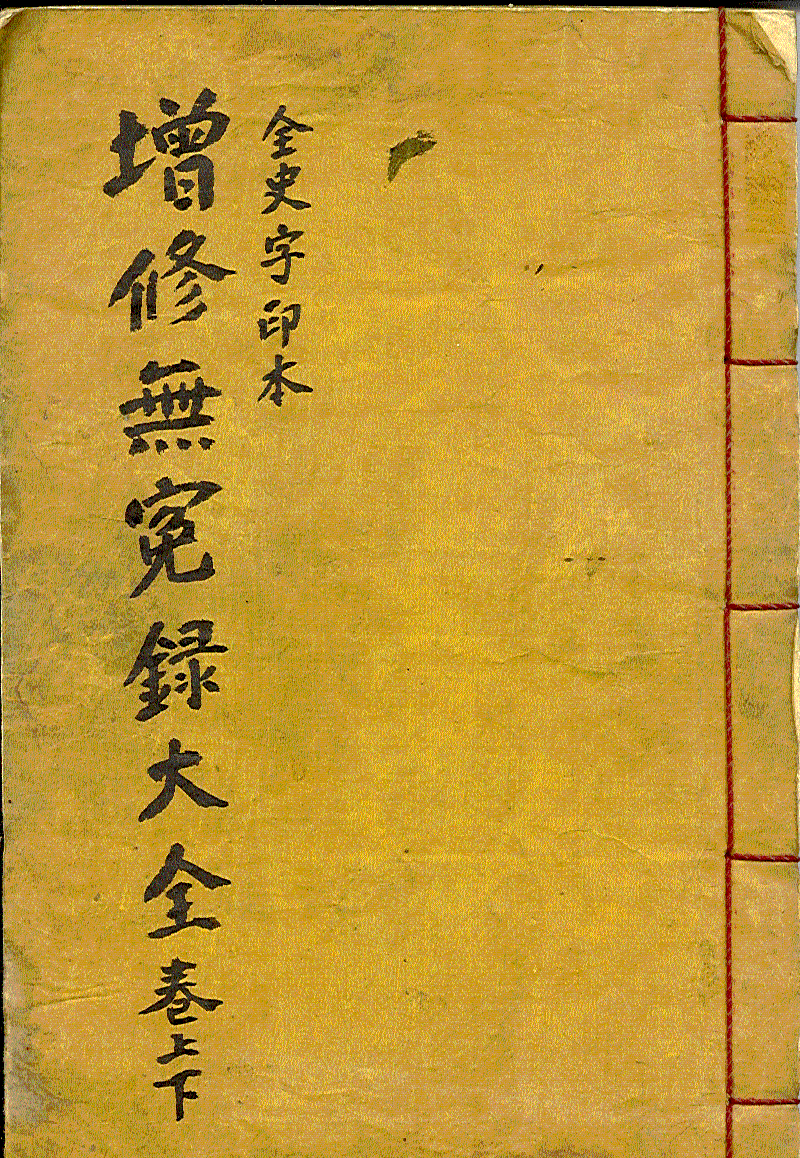 全史字印本
增修無寃録大全巻上下